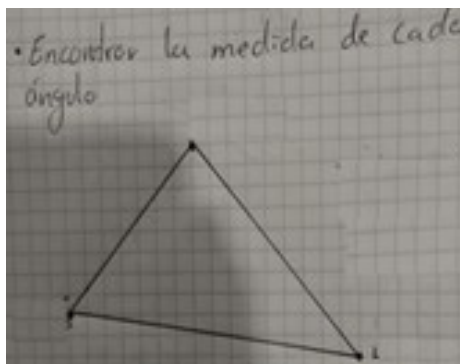 • Encontrar la medida de cada
ángulo